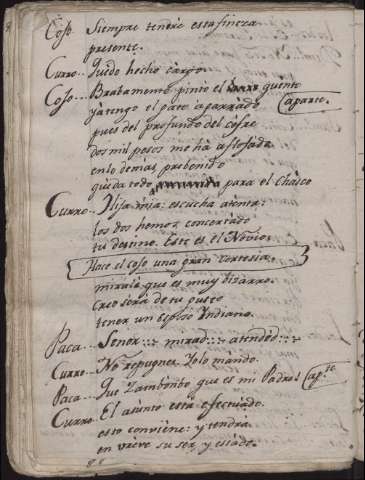 Coso. Siempre tenere esta fineza
presente.
Curro.. Quedo hecho cargo.
Coso... Brabamente pinto el quento
ya tengo el pato agarrado Caparte.
pues del profundo del cofre
dos mil pesos me ha aflojado
en lo demas prebenido
queda todo para el Chasco
Curro.. Hija mia: escucha atenta:
los dos hemos concertado
tu destino. Este es el Novio,
Hace el coso una gran cortesia.
mirale que es muy bizarro.
creo será de tu gusto
tener un Esposo Indiano.
Paca... Señor... mirad... atended...
Curro.. No repugnes. Yo lo mando.
Paca... Que Zambombo que es mi Padre! Cap.te
Curro.. El asunto está efectuado.
esto conviene: y tendrá
en vreve su ser, y estado.